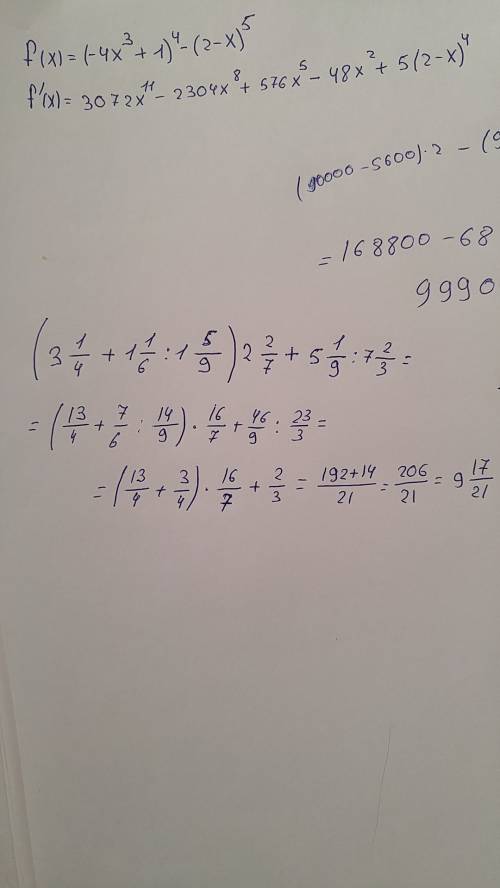 f(x) = (-4x³ + 1)⁴ - (2-x)⁵
f'(x) = 3072x¹¹ - 2304x⁸ + 576x⁵ - 48x² + 5(2-x)⁴
(90000 - 5600)·2 - (9
= 168800 - 68
9990
(3 1/4 + 1 1/6 : 1 5/9) 2 2/7 + 5 1/9 : 7 2/3 =
= (13/4 + 7/6 : 14/9) · 16/7 + 46/9 : 23/3 =
= (13/4 + 3/4) · 16/7 + 2/3 = 192+14/21 = 206/21 = 9 17/21